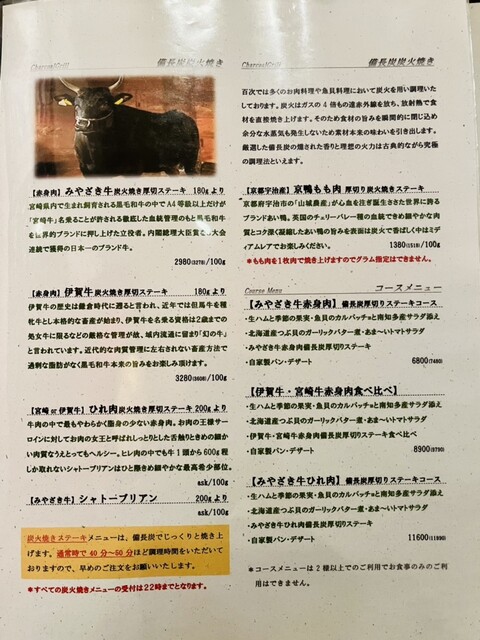 Charcoal Grill 備長炭炭火焼き
【赤身肉】みやざき牛 炭火焼き厚切ステーキ 180gより
宮崎県内で生まれ飼育される黒毛和牛の中でA4等級以上だけが
「宮崎牛」名乗ることが許される徹底した血統管理のもと黒毛和牛
を世界的ブランドに押し上げた立役者。内閣総理大臣賞など大会
連続で獲得の日本一のブランド牛。
2980(3278)/100g
【赤身肉】伊賀牛 炭火焼き厚切ステーキ 180gより
伊賀牛の歴史は鎌倉時代に遡ると言われ、近年では但馬牛を種
牝牛とし本格的な畜産が始まり、伊賀牛を名乗る資格は2歳までの
処女牛に限るなどの厳格な管理が故、域内流通に留まり「幻の牛」
と言われています。近代的な肉質管理に左右されない畜産方法で
過剰な脂肪がなく黒毛和牛本来の旨みをお楽しみ頂けます。
3280(3608)/100g
【宮崎 or 伊賀牛】ひれ肉 炭火焼き厚切ステーキ 200gより
牛肉の中で最もやわらかく脂身の少ない赤身肉。お肉の王様サー
ロインに対してお肉の女王と呼ばれしっとりとした舌触りときめの細か
い肉質なうえとってもヘルシー。ヒレ肉の中でも牛1頭から600g程
しか取れないシャトーブリアンはひと際きめ細やかな最高希少部位。
ask/100g
【みやざき牛】シャトーブリアン 200gより
ask/100g
炭火焼きステーキメニューは、備長炭でじっくりと焼き上
げます。通常時で40分~50分ほど調理時間をいただいて
おりますので、早めのご注文をお願いいたします。
*すべての炭火焼きメニューの受付は22時までとなります。
Charcoal Grill 備長炭炭火焼き
百次では多くのお肉料理や魚貝料理において炭火を用い調理いた
しております。炭火はガスの4倍もの遠赤外線を放ち、放射熱で食
材を直接焼き上げます。そのため食材の旨みを瞬間的に閉じ込め
余分な水蒸気も発生しないため素材本来の味わいを引き出します。
厳選した備長炭の燻された香りと理想の火力は古典的ながら究極
の調理法といえます。
【京都宇治産】京鴨もも肉 厚切り炭火焼きステーキ
京都府宇治市の「山城農産」が心血を注ぎ誕生させた世界に誇る
ブランドあい鴨。英国のチェリーバレー種の血統できめ細やかな肉
質とコク深く凝縮したあい鴨の旨みを表面は炭火で香ばしく中はミデ
ィアムレアでお楽しみください。 1380(1518)/100g
*もも肉を1枚肉で焼き上げますのでグラム指定はできません。
Course Menu コースメニュー
【みやざき牛赤身肉】備長炭厚切りステーキコース
・生ハムと季節の果実・魚貝のカルパッチョと南知多産サラダ添え
・北海道産つぶ貝のガーリックバター煮・あま~いトマトサラダ
・みやざき牛赤身肉備長炭厚切りステーキ
・自家製パン・デザート 6800(7480)
【伊賀牛・宮崎牛赤身肉食べ比べ】
・生ハムと季節の果実・魚貝のカルパッチョと南知多産サラダ添え
・北海道産つぶ貝のガーリックバター煮・あま~いトマトサラダ
・伊賀牛・宮崎牛赤身肉備長炭厚切りステーキ食べ比べ
・自家製パン・デザート 8900(9790)
【みやざき牛ひれ肉】備長炭厚切りステーキコース
・生ハムと季節の果実・魚貝のカルパッチョと南知多産サラダ添え
・北海道産つぶ貝のガーリックバター煮・あま~いトマトサラダ
・みやざき牛ひれ肉備長炭厚切りステーキ
・自家製パン・デザート 11600(11890)
*コースメニューは2様以上でのご利用でお食事のみのご利
用はできません。